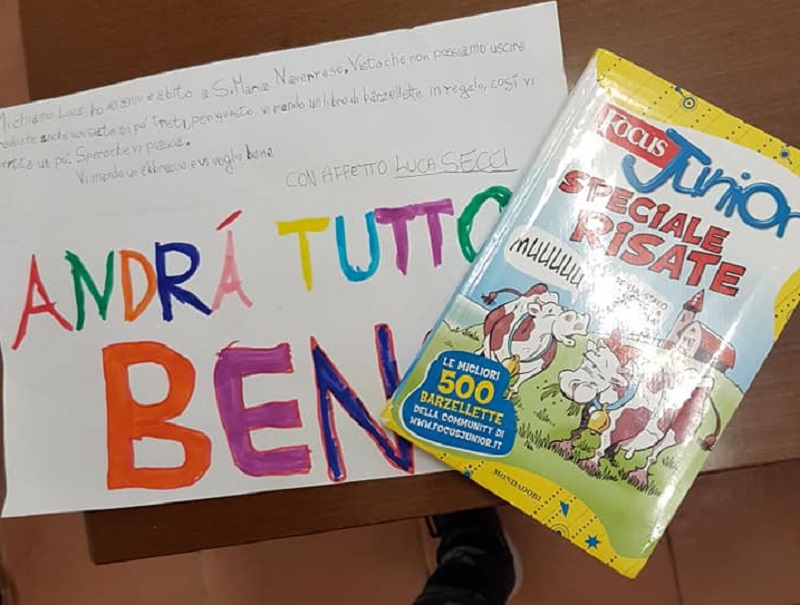 Mi chiamo Luca, ho 10 anni e abito a S. Maria Navarrese. Visto che non possiamo uscire
anche voi siete un pò tristi, per questo vi mando un libro di barzellette in regalo, così vi
un pò. Spero che vi piaccia.
Vi mando un abbraccio e vi voglio bene
CON AFFETTO LUCA SECCI
ANDRÁ TUTTO
BEN
FOCUS
Junior
SPECIALE
RISATE
MUUUUUU
LE MIGLIORI
500
BARZELLETTE
DELLA COMMUNITY DI
WWW.FOCUSJUNIOR.IT
MONDADORI